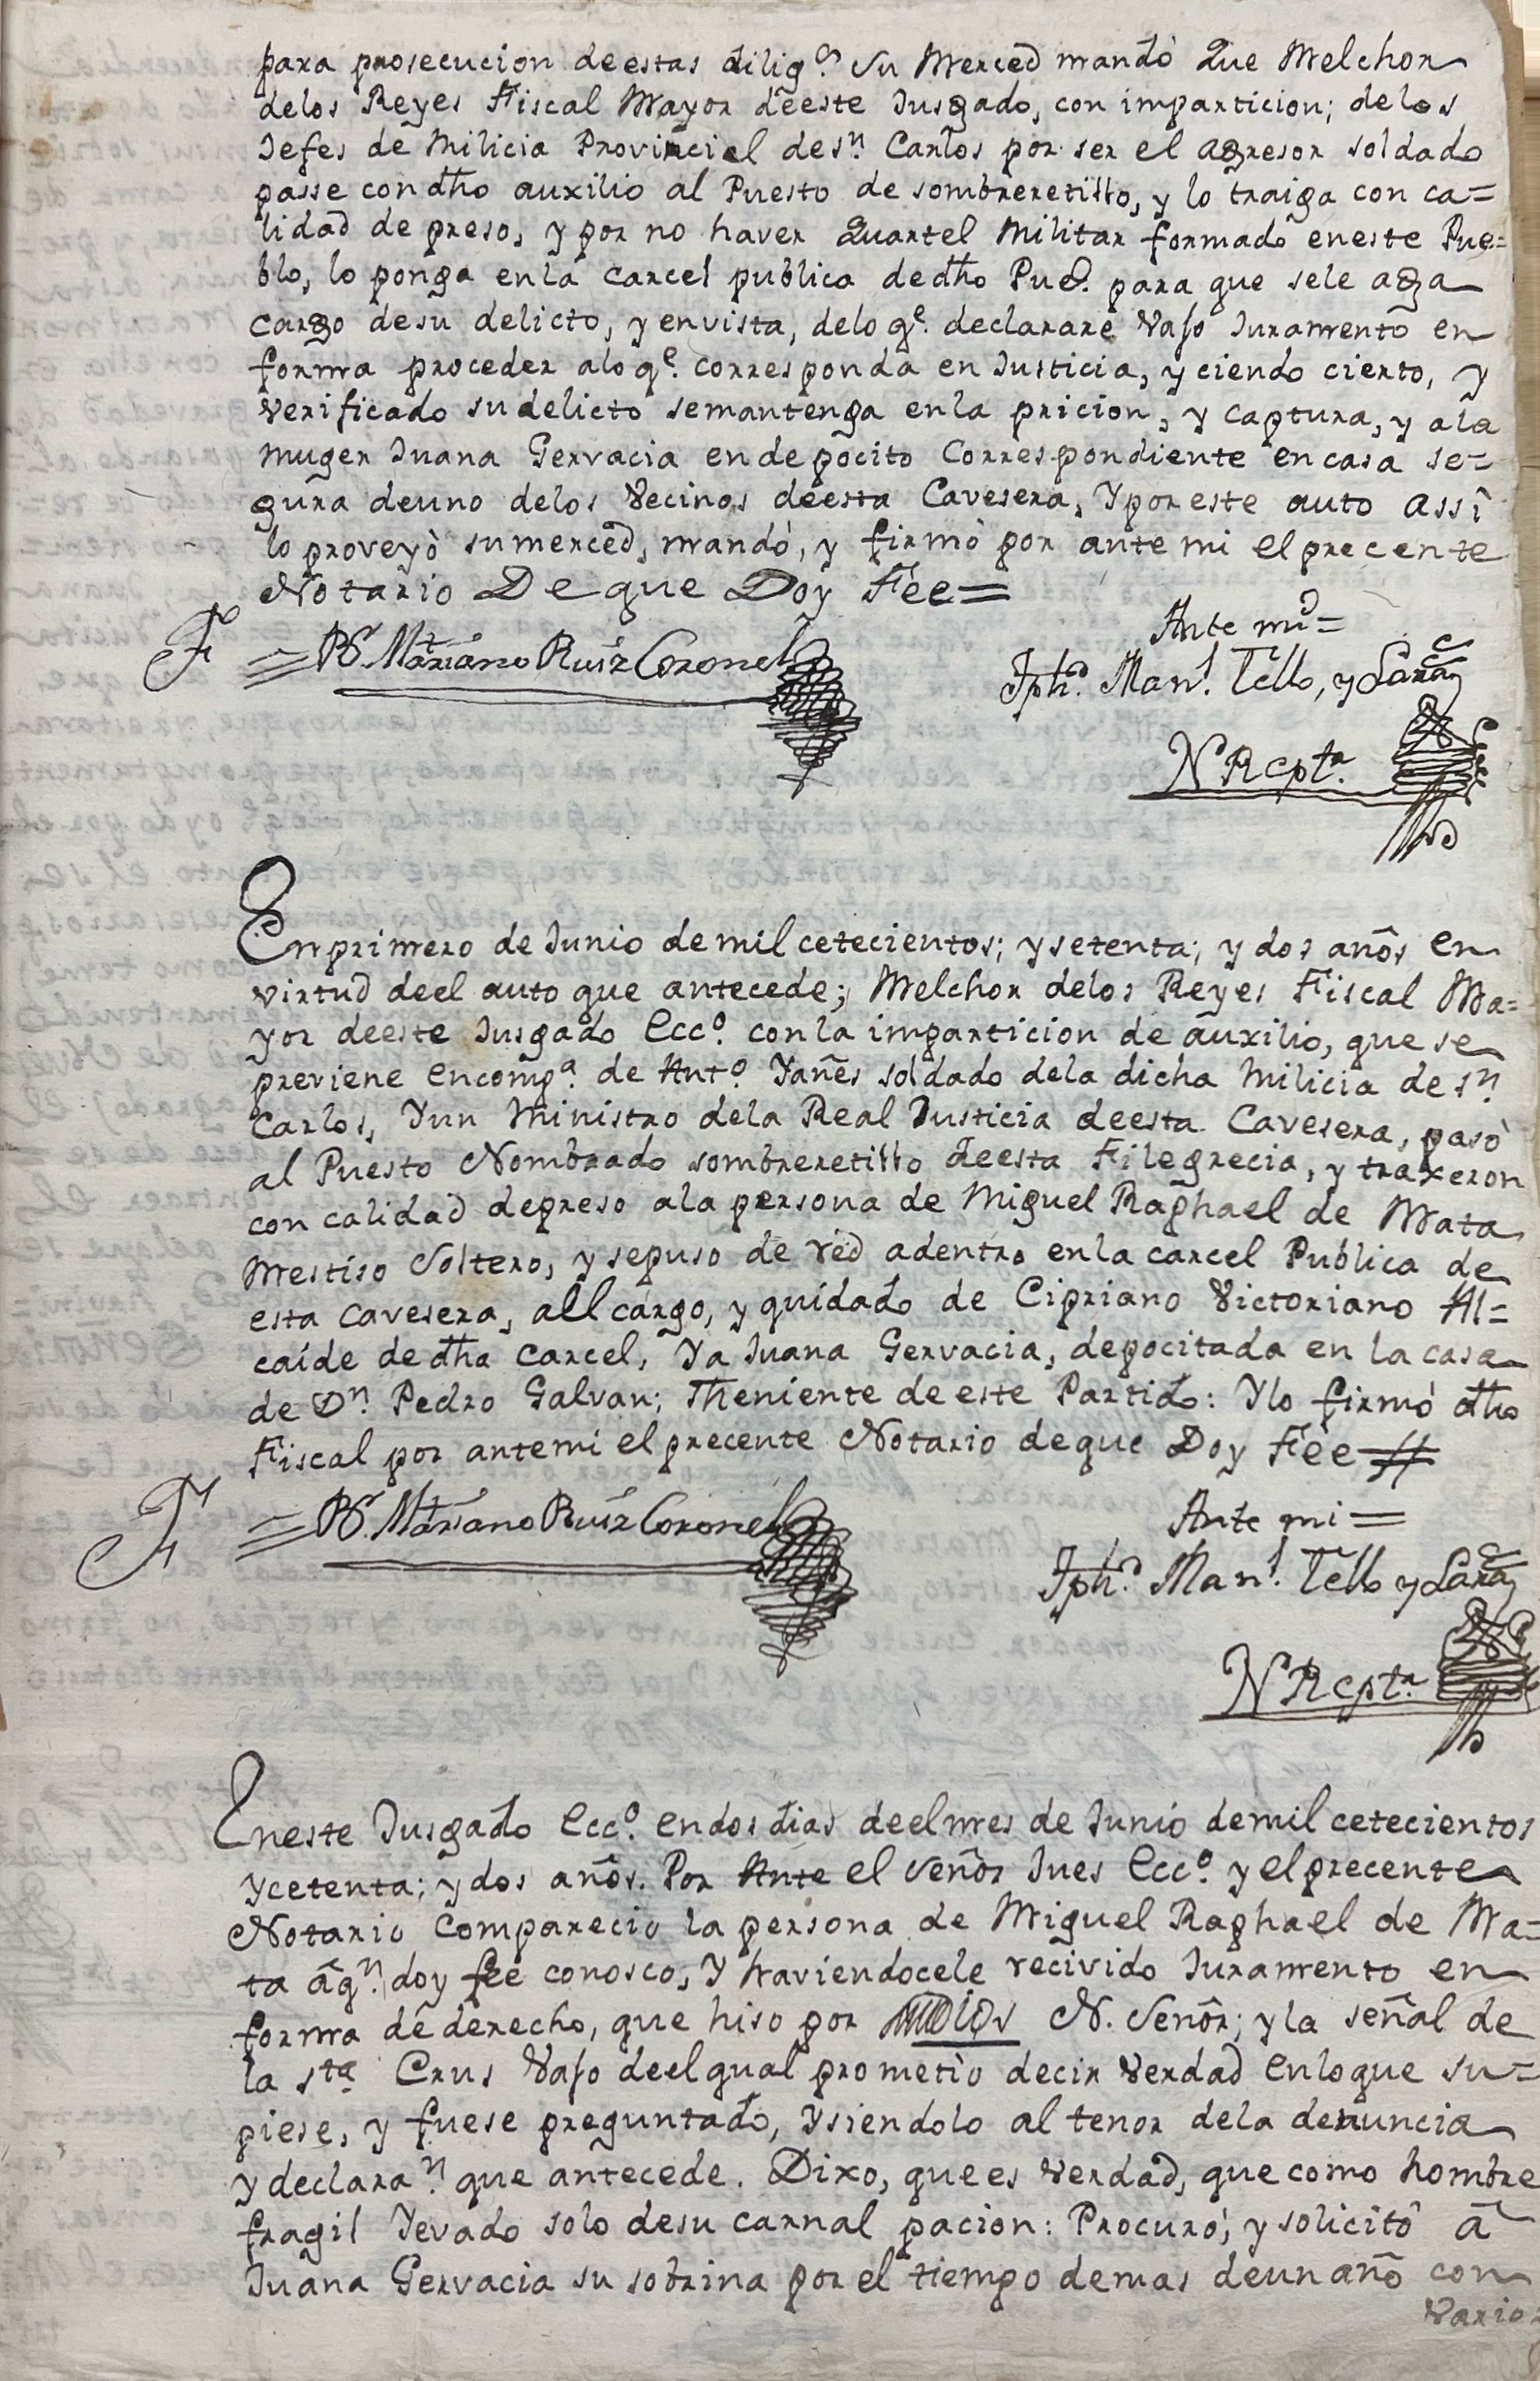 para prosecucion deestas dilig.s Su Merced mandó Que Melchor
delos Reyes Fiscal Mayor deeste Jusgado, con imparticion; delos
Jefes de Milicia Provincial de Sn. Carlos por ser el agresor soldado
passe con dho auxilio al Puesto de sombreretillo, y lo traiga con ca=
lidad de preso, y por no haver Quartel Militar formado eneste Pue=
blo, lo ponga enla carcel publica de dho Pueo. para que sele aga
cargo desu delicto, y envista, delo qe. declarare Vajo Juramento en
forma proceder alo qe. corresponda en Justicia, y ciendo cierto, y
verificado sudelicto semantenga enla pricion, y captura, y ala
muger Juana Gervacia endepocito Correspondiente encasa se=
gura deuno delos Vecinos deesta Cavesera, Yporeste auto assi
lo proveyò sumerced, mandó, y firmò por ante mi elprecente
Notario De que Doy Fée=
F = BS. Mariano Ruiz Coronel
Ante mi=
Jph. Manl. Tello, y Lara
N Rcptr.
Enprimero de Junio demil cetecientos; ysetenta; y dos años en
virtud deel auto que antecede; Melchor delos Reyes Fiscal Ma=
yor deeste Jusgado Ecco. conla imparticion de auxilio, que se
previene encompa. de Anto. Yañes soldado dela dicha Milicia de Sn.
Carlos, Yun Ministro dela Real Justicia deesta Cavesera, pasò
al Puesto Nombrado sombreretillo deesta Filegrecia, y traxeron
con calidad depreso ala persona de Miguel Raphael de Mata
Mestiso Soltero, y sepuso de red adentro enla carcel Publica de
esta cavesera, all cargo, y quidado de Cipriano Victoriano Al=
caide de dha carcel, Ya Juana Gervacia, depocitada en la casa
de Dn. Pedro Galvan; Theniente de este Partido: Ylo firmó dho
Fiscal por antemi el precente Notario deque Doy Fée=//
F = BS. Mariano Ruiz Coronel
Ante mi=
Jph. Manl. Tello y Lara
N Rcptr.
Eneste Jusgado Ecco. endos dias deelmes de Junio demil cetecientos
ycetenta; y dos años. Por Ante el Señor Jues Ecco. y elprecente
Notario Comparecio la persona de Miguel Raphael de Ma=
ta aqn. doy fee conosco, Y haviendocele recivido Juramento en
forma de derecho, que hiso por Dios N. Señor; y la señal de
la sta. Crus Vajo deelqual prometio decir Verdad Enloque su=
piese, y fuese preguntado, Ysiendolo al tenor dela denuncia
y declaran. que antecede. Dixo, que es Verdad, que como hombre
fragil Yevado solo desu carnal pacion: Procuró, y solicitó á
Juana Gervacia su sobrina por el tiempo demas deunaño con
varios